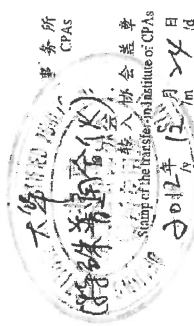 大华
事务所
CPAs
(特殊普通合伙)
转入协会盖章
Stamp of the transfer-in Institute of CPAs
2012年 12月 24日
/y /m /d